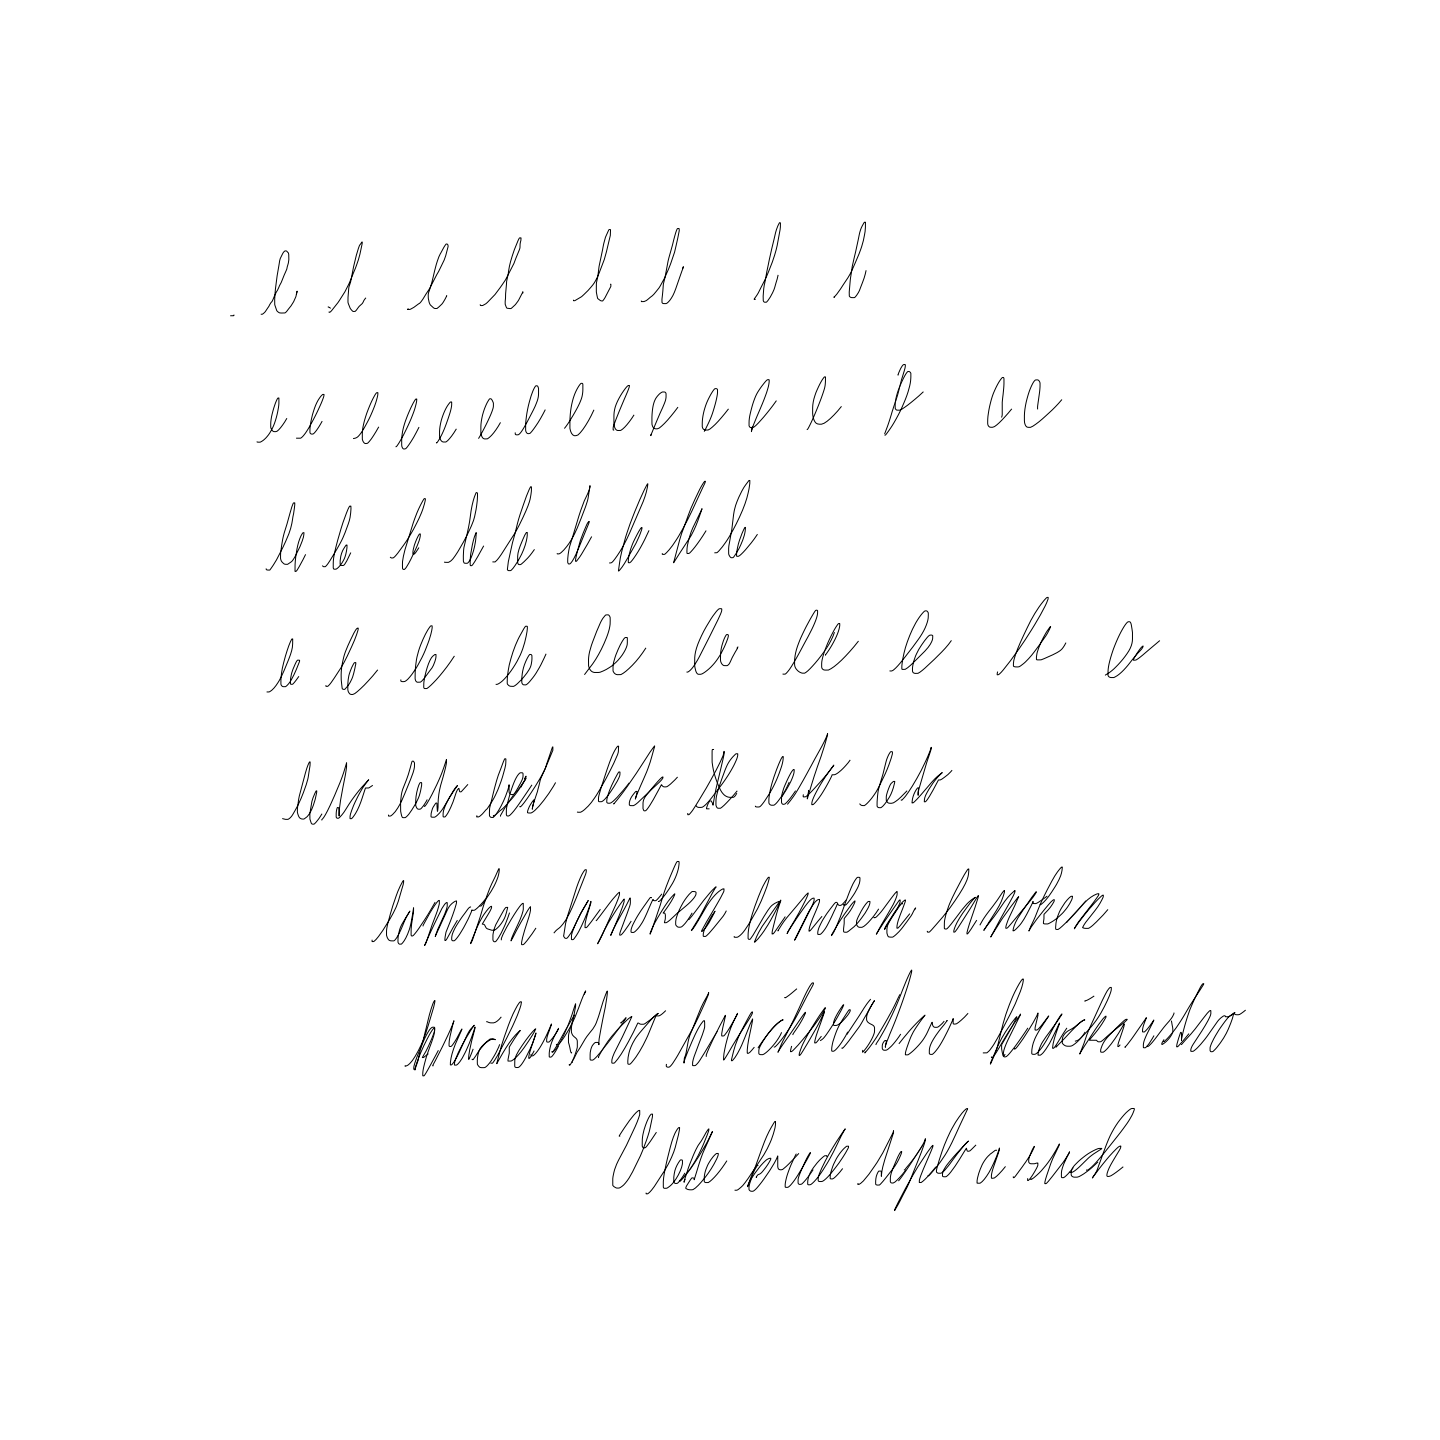 l l l l l l l l
e e e e e e e e e e e e e e e e
le le le le le le le le le
le le le le le le le le le e
leto leto let leto leto leto
lamoken lamoken lamoken lamoken
hračkarstvo hračkarstvo hračkarstvo
V lete bude teplo a such